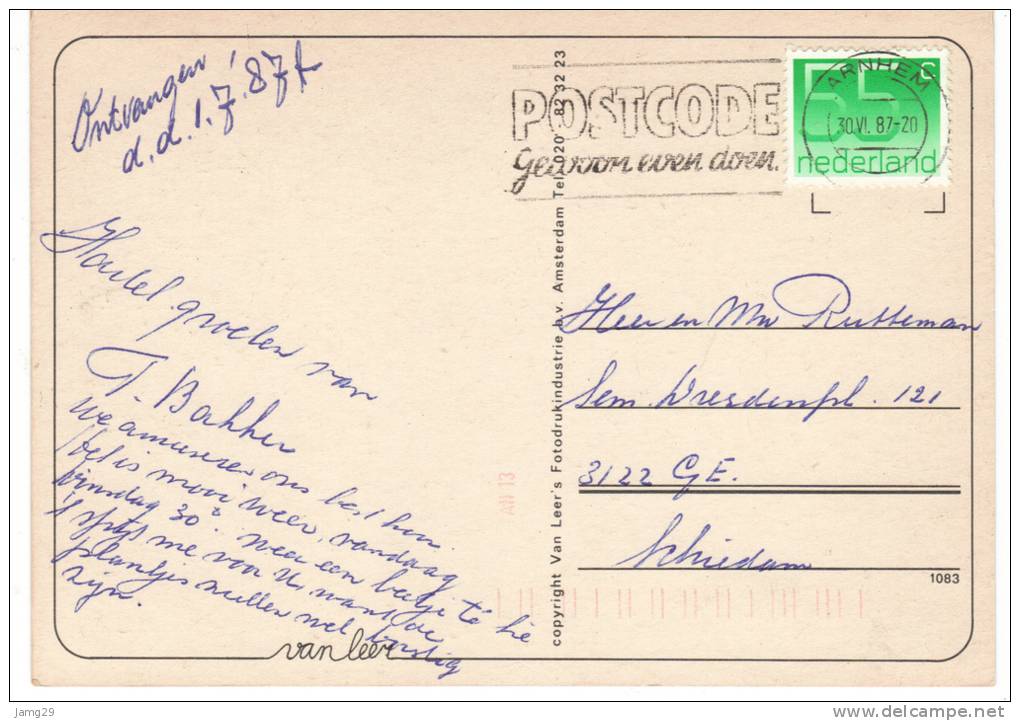 Ontvangen
d.d. 1.7.87
Hartel. groeten van
T. Bakker
We amuseren ons best hier.
het is mooi weer, vandaag
dinsdag 30°. Weer een beetje te hie
't spijt me voor U, want de
plantjes zullen wel dorstig
zijn.
van leer
copyright Van Leer's Fotodrukindustrie b.v. Amsterdam Tel. 020 - 82 32 23
POSTCODE
Gewoon even doen.
55 c
nederland
ARNHEM
30.VI. 87-20
Heer en Mw Rutteman
Sem. Dresdenpl. 121
3122 GE.
Schiedam
AN 13
1083
jamg29